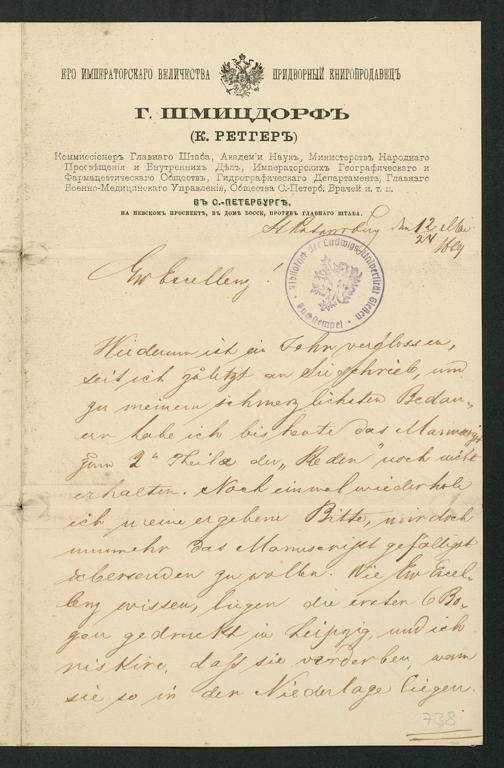 ЕГО ИМПЕРАТОРСКАГО ВЕЛИЧЕСТВА ПРИДВОРНЫЙ КНИГОПРОДАВЕЦЪ
Г. ШМИЦДОРФЪ
(К. РЕТГЕРЪ)
Коммиссіонеръ Главнаго Штаба, Академіи Наукъ, Министерствъ Народнаго
Просвѣщенія и Внутреннихъ Дѣлъ, Императорскихъ Географическаго и
Фармацевтическаго Обществъ, Гидрографическаго Департамента, Главнаго
Военно-Медицинскаго Управленія, Общества С.-Петерб. Врачей и т. п.
ВЪ С.-ПЕТЕРБУРГѢ,
НА НЕВСКОМЪ ПРОСПЕКТѢ, ВЪ ДОМѢ БОССЕ, ПРОТИВЪ ГЛАВНАГО ШТАБА.
St Petersburg den 12/24 Mai
Bibliothek der Ludwigs-Universität Gießen
Ew Excellenz!
Wiederum ist ein Jahr verflossen,
seit ich zuletzt an Sie schrieb, und
zu meinem schmerzlichsten Bedau-
ern habe ich bis heute das Manuscript
zum 2n Theile der „Reden" noch nicht
erhalten. Noch einmal wiederhole
ich meine ergebene Bitte, mir doch
nunmehr das Manuscript gefälligst
übersenden zu wollen. Wie Ew Excel-
lenz wissen, liegen die ersten 6 Bo-
gen gedruckt in Leipzig, und ich
riskire, daß sie verderben, wenn
sie so in der Niederlage liegen.
738